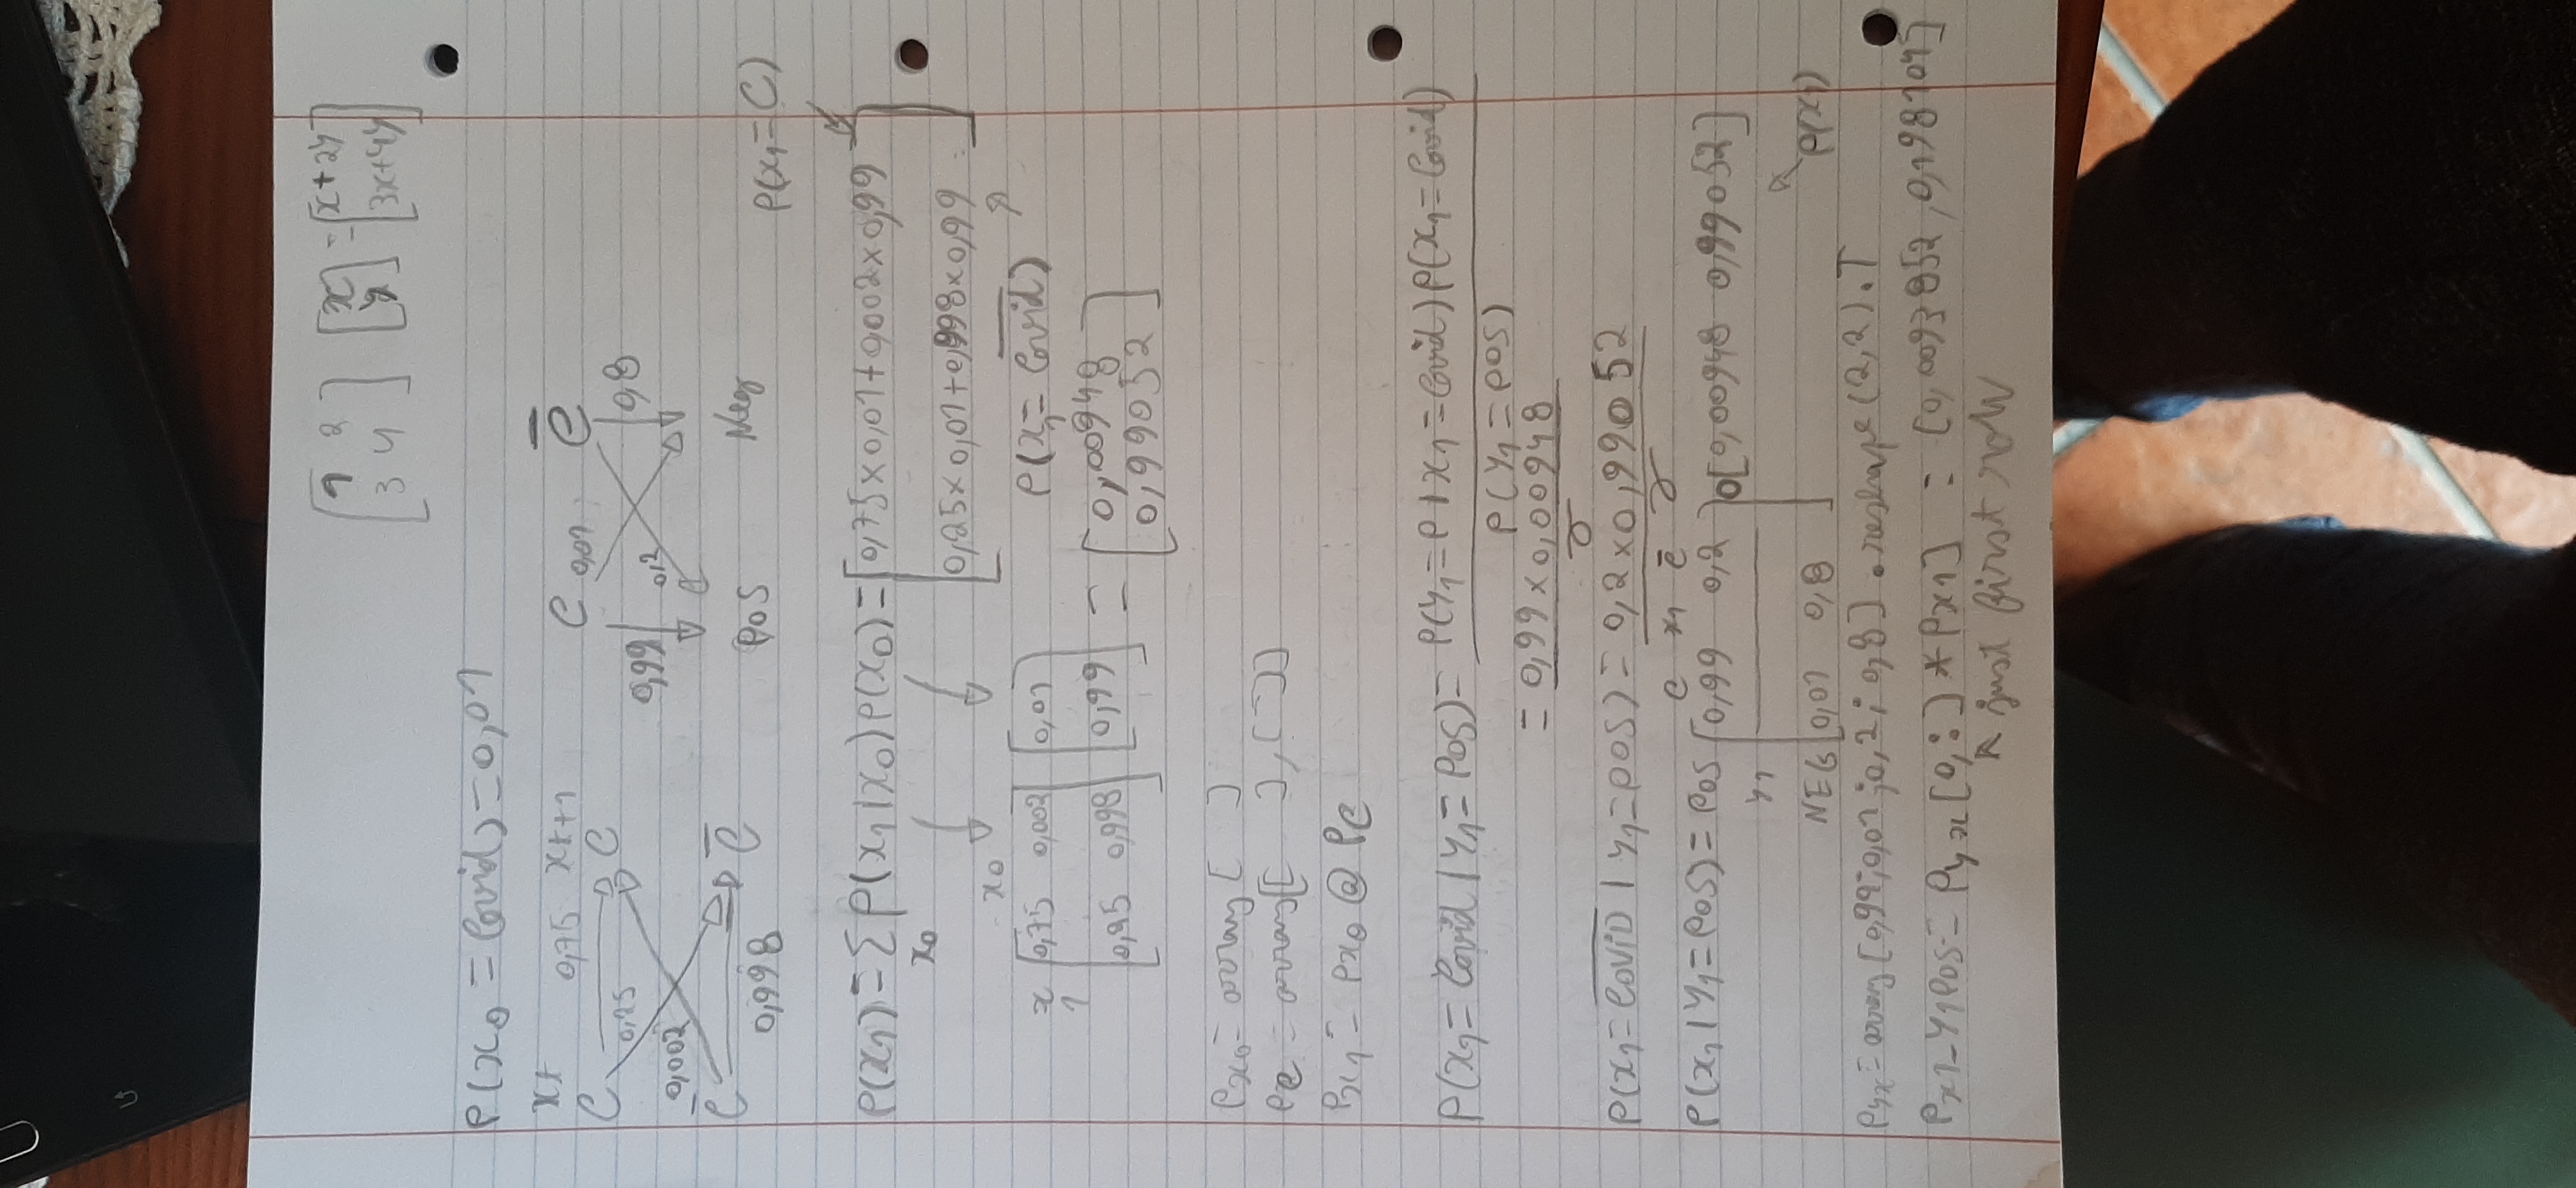 [1 2
3 4] [x
y] = [x+2y
3x+4y]
P(x0 = Covid) = 0,01
xt 0,75 xt+1
C C
0,25
0,002
C̅ C̅
0,998
C 0,01 C̅
0,99 0,2 0,8
POS Neg
P(x1 = C)
P(x1) = Σ P(x1|x0) P(x0) = [0,75×0,01+0,002×0,99
x0
0,25×0,01+0,998×0,99]
x0
P(x1 = C̅o̅v̅i̅d̅)
x1 [0,75 0,002
0,25 0,998] [0,01
0,99] = [0,00948
0,99052]
Px0 = array [ ]
Pc = array[[ ], [ ]]
Px1 = Px0 @ Pc
P(x1 = Covid | y1 = POS) = P(y1 = P | x1 = Covid) P(x1 = Covid)
P(y1 = POS)
= 0,99 × 0,00948
γ
P(x1 = C̅O̅V̅I̅D̅ | y1 = POS) = 0,2 × 0,99052
γ
C x1 C̅
P(x1 | y1 = POS) = POS [0,99 0,2] o [0,00948 0,99052]
y1
P(x1)
NEG [0,01 0,8]
Pyx = array [0,99; 0,01; 0,2; 0,8] . reshape (2,2) . T
Px1_y1pos = Pyx [0,:] * Px1] = [0,0093852, 0,198104]
just first row